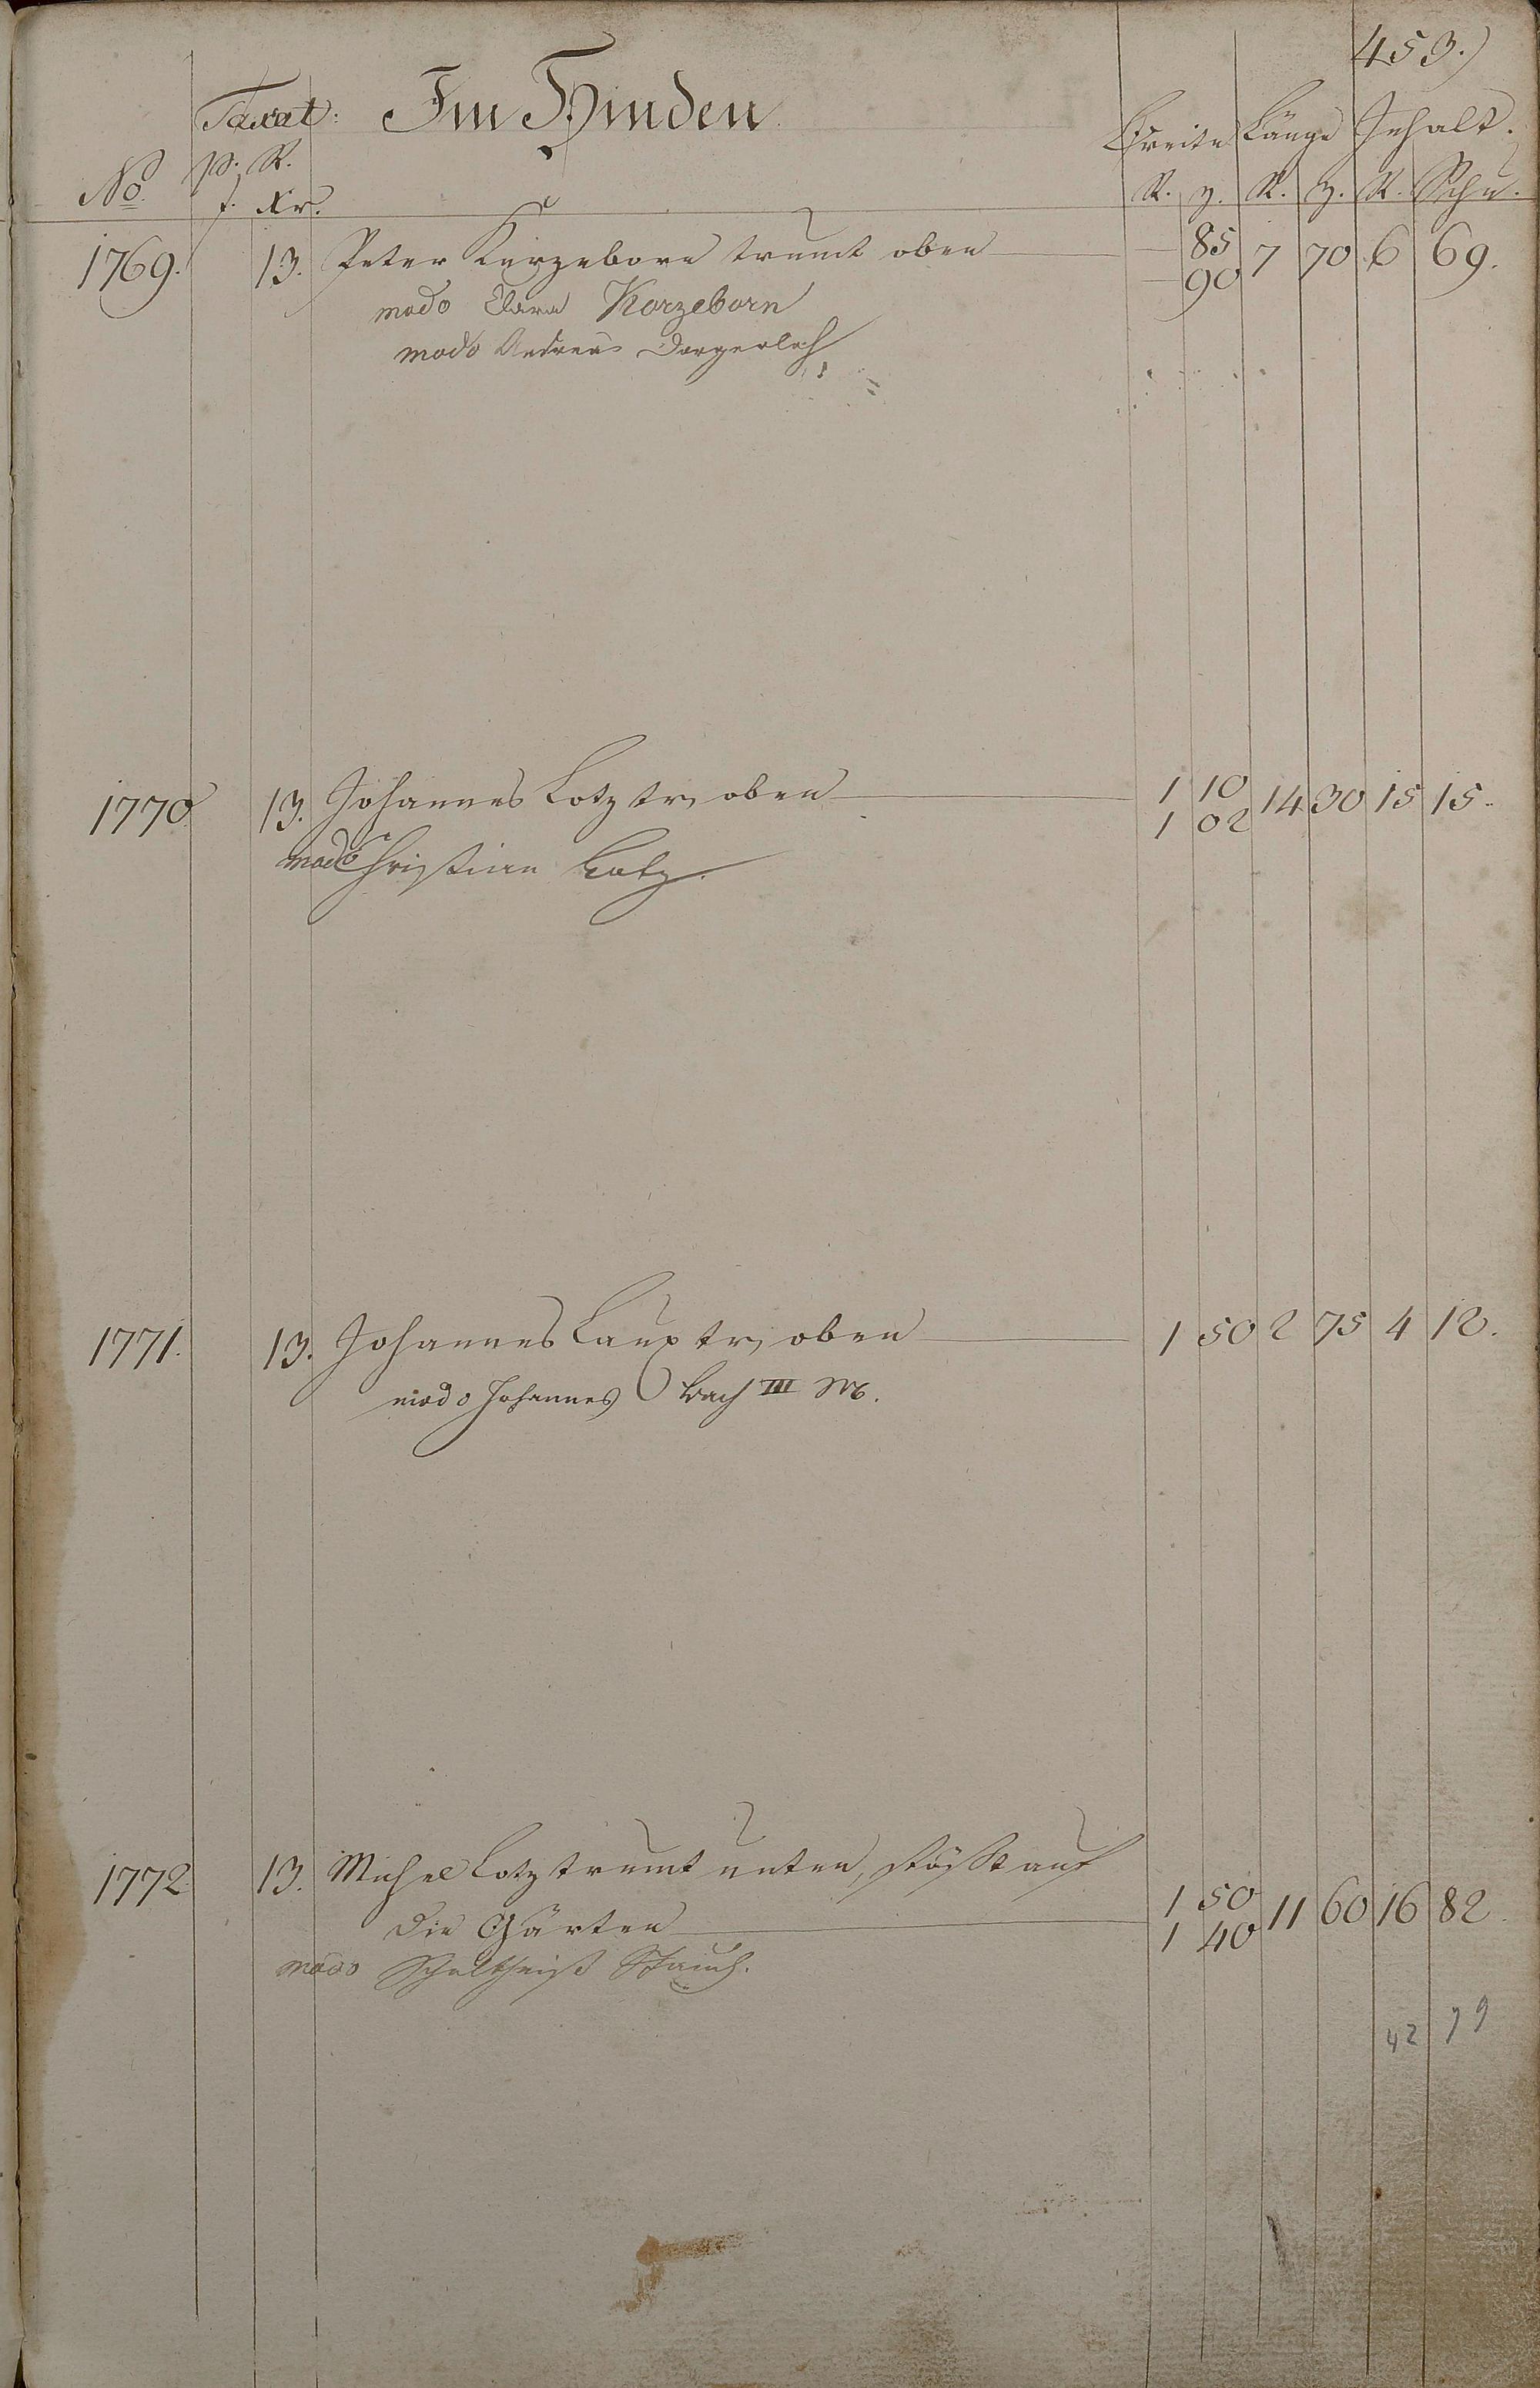 453.)
Taxat: Im Hinden
Breite Länge Inhalt.
No. p. R. R. z. R. z. R. Schu.
f. Xr.
1769. 13. Peter Kurzeborn trumt oben — 85 7 70 6 69.
— 90
modo Clara Korzeborn
modo Andreas
1770 13. Johannes Lotz tr. oben 1 10 14 30 15 15.
1 02
modo Christian Lotz.
1771. 13. Johannes Laux tr. oben 1 50 2 75 4 12.
modo Johannes Bach III M.
1772 13. Michel Lotz trumt unten, stößt auf
die Gärten 1 50 11 60 16 82
1 40
modo Schultheiß Stauch.
42 79